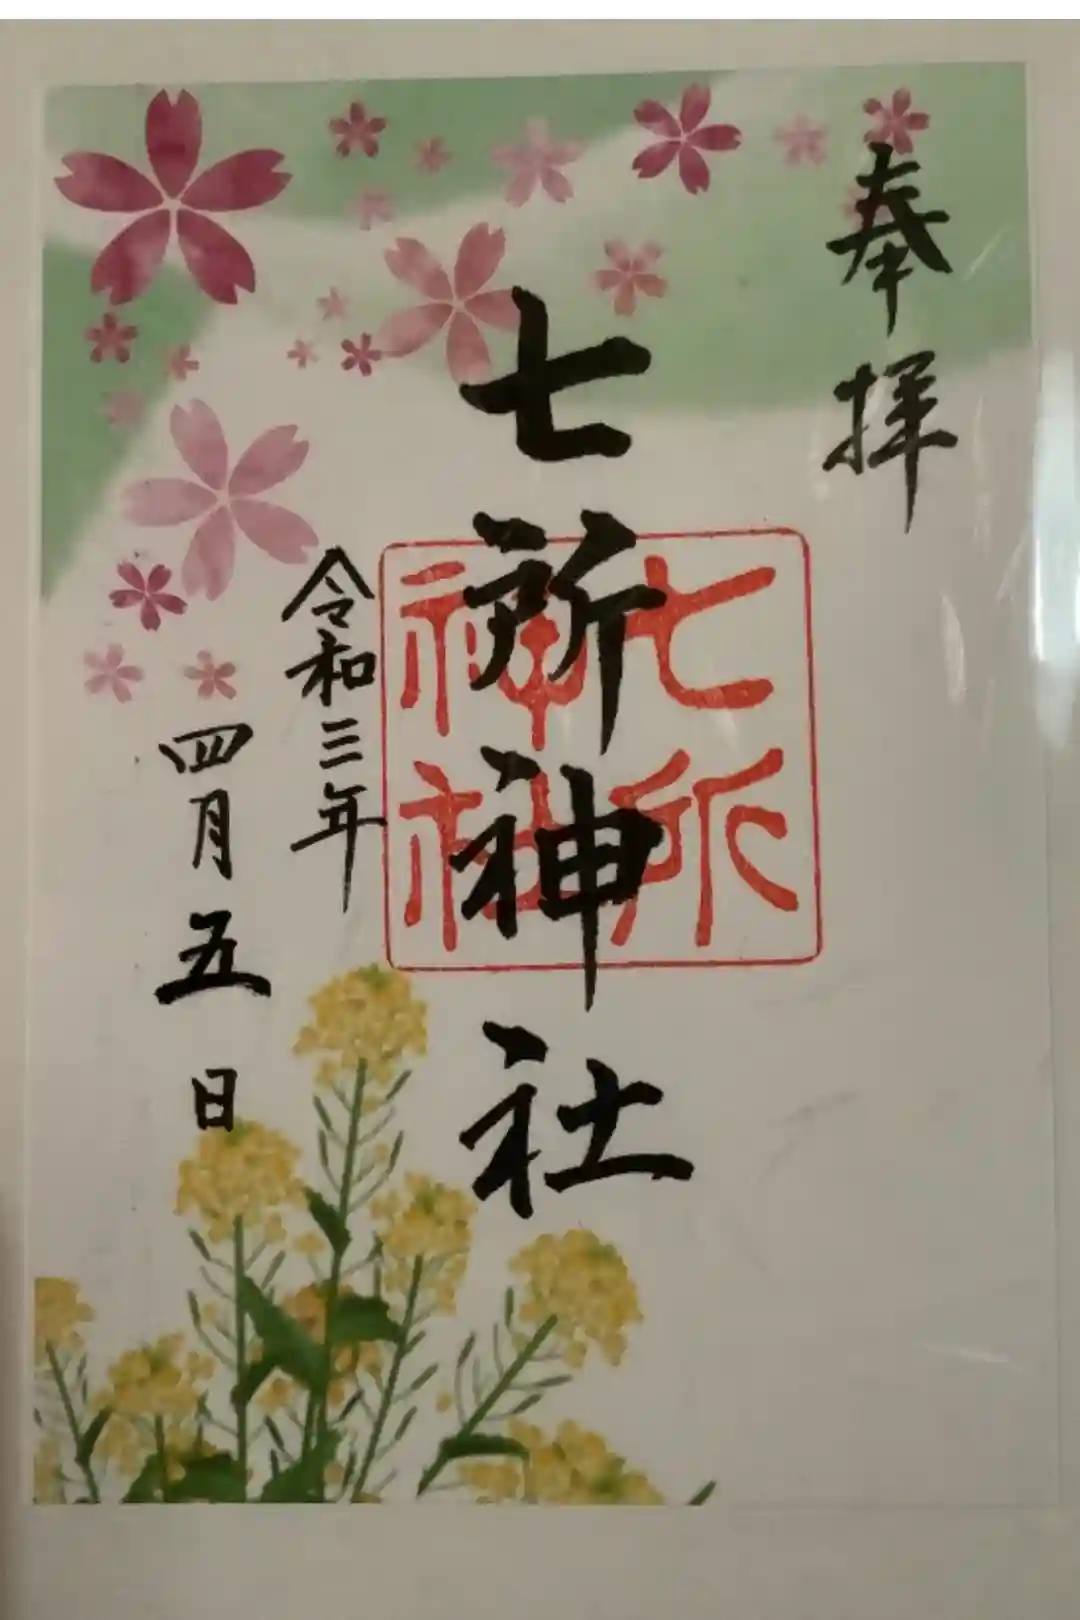 奉拝
七所神社
七所
神社
令和三年
四月五日